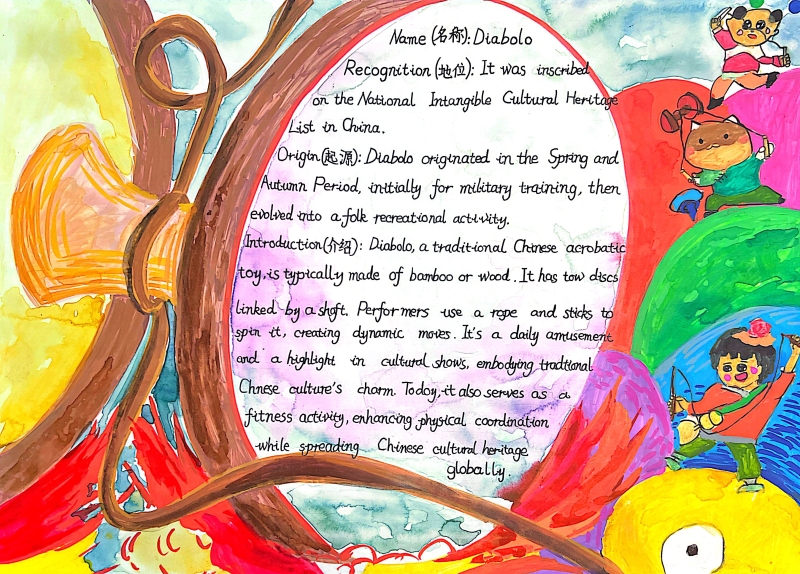 Name (名称): Diabolo
Recognition (地位): It was inscribed
on the National Intangible Cultural Heritage
List in China.
Origin(起源): Diabolo originated in the Spring and
Autumn Period, initially for military training, then
evolved into a folk recreational activity.
Introduction(介绍): Diabolo, a traditional Chinese acrobatic
toy, is typically made of bamboo or wood. It has tow discs
linked by a shaft. Performers use a rope and sticks to
spin it, creating dynamic moves. It's a daily amusement
and a highlight in cultural shows, embodying traditional
Chinese culture's charm. Today, it also serves as a
fitness activity, enhancing physical coordination
while spreading Chinese cultural heritage
globally.